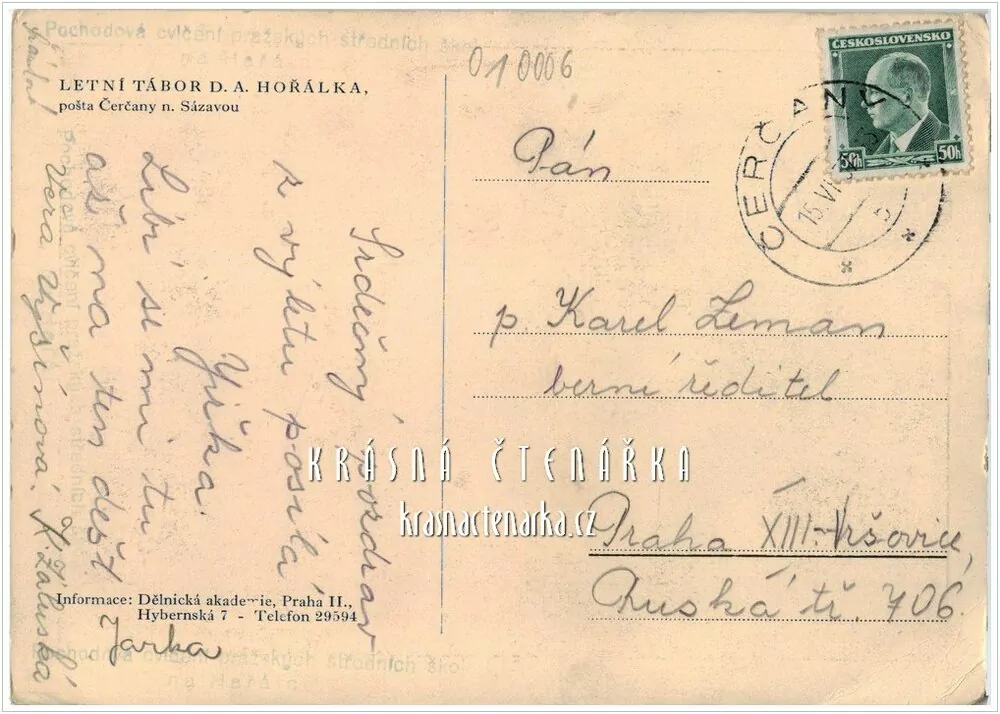 Pochodová cvičení pražských středních škol
LETNÍ TÁBOR D. A. HOŘÁLKA,
pošta Čerčany n. Sázavou
Srdečný pozdrav
z výletu posílá
Jiřka.
Líbí se mi tu
až na ten déšť.
Věra Vyšínová.
Jarka
Informace: Dělnická akademie, Praha II.,
Hybernská 7 - Telefon 29594
Pochodová cvičení pražských středních škol
010006
ČESKOSLOVENSKO
50h 50h
ČERČANY
15 VI
Pán
p. Karel Zeman
berní ředitel
Praha XIII-Vršovice,
Ruská tř. 706.
KRÁSNÁ ČTENÁŘKA
krasnactenarka.cz